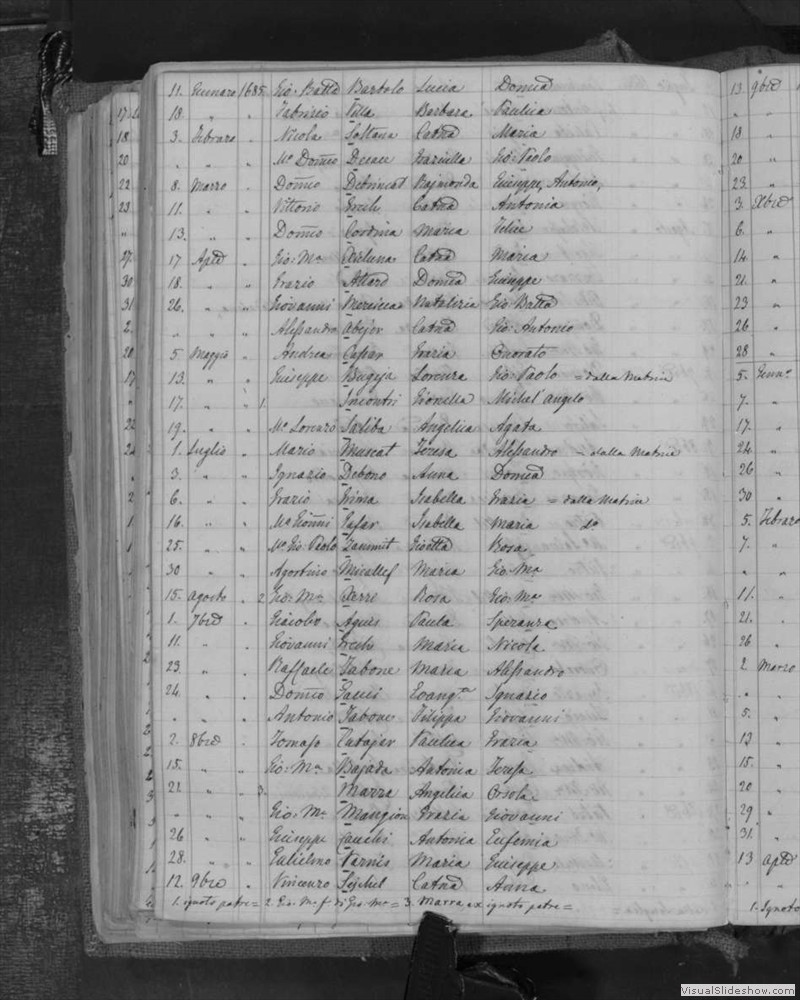 11. Gennaro 1685. Gio: Batta Bartolo Lucia Domca
18. " " Fabrizio Villa Barbara Paulica
3. Febraro " Nicola Soltana Catna Maria
" " " Mo Domco Graziella Gio: Paolo
8. Marzo " Domco Raimonda Giuseppe, Antonio,
11. " " Vittorio Catna Antonia
13. " " Domco Cordina Maria Felice
17 Aple " Gio: Ma Catna Maria
18. " " Grazio Attard Domca Giuseppe
26. " " Giovanni Natalizia Gio Batta
" " " Alessandro Abejer Catna Gio: Antonio
5. Maggio " Andrea Caspar Grazia Onorato
13. " " Giuseppe Bugeja Lorenza Gio: Paolo = dalla Matrice
17. " " 1. Incontri Gionella Michel' Angelo
19. " " Mo Lorenzo Saliba Angelica Agata
1. Luglio " Mario Muscat Teresa Alessandro = dalla Matrice
3. " " Ignazio Debono Anna Domca
6. " " Grazio Grima Isabella Grazia = dalla Matrice
16. " " Mo Gionni Safar Isabella Maria do
25. " " Mo Gio: Paolo Zammit Rosa
30 " " Agostino Micallef Maria Gio: Ma
15. Agosto " 2. Gio: Ma Xerri Rosa Gio: Ma
1. 7bre " Giacobo Agius Paula Speranza
11. " " Giovanni Maria Nicola
23. " " Raffaele Tabone Maria Alessandro
24. " " Domco Gauci Evangta Ignazio
" " " Antonio Tabone Filippa Giovanni
2. 8bre " Tomaso Cutajar Paulica Grazia
15. " " Gio: Ma Bajada Antonia Teresa
21 " " 3. Marra Angelica Orsola
" " " Gio: Ma Mangion Grazia Giovanni
26 " " Giuseppe Antonia Eufemia
28. " " Gulielmo Farnes Maria Giuseppe
12. 9bre " Vincenzo Sejchel Catna Anna
1. ignoto patre = 2. Gio. Ma f. di Gio. Ma = 3. Marra ex ignoto patre =
17.
18
20
22
23
"
27
30
31
2.
20
17
"
22
24
13 9bre
" "
18 "
20 "
23. "
3. Xbre
6. "
14. "
21. "
23 "
26 "
28 "
5. Genno
7. "
17. "
24. "
26 "
30 "
5. Febraro
7. "
" "
11. "
21. "
26 "
2. Marzo
" "
5. "
13 "
15. "
20 "
29 "
31. "
13 Aple
" "
1. Ignoto
VisualSlideshow.com